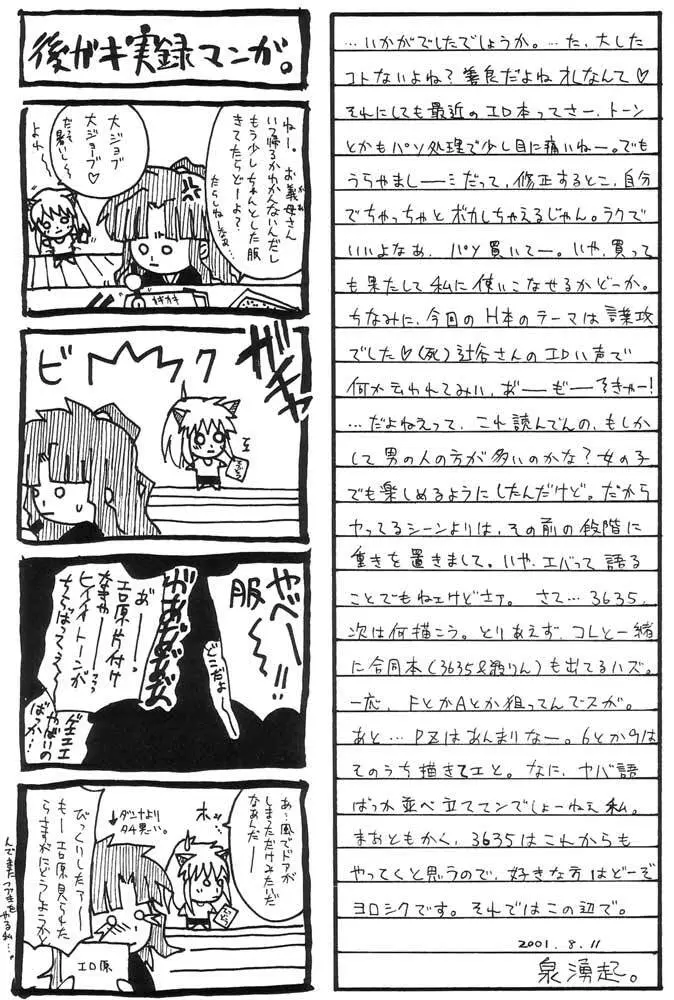 後ガキ実録マンガ。
ねー。お義母さん
いつ帰るかわかんないんだし
もう少しちゃんとした服
きてたらどーよ?
だらしねなぁ…
大ジョブ
大ジョブ♡
だって暑いしぃ。
よゆ〜
ガチャ
ビクク
やべーー!!
服ー
どこだよ
があぁぁぁぁ
あ"ーー。
エロ原片付け
なきゃーー
ヒイイイトーンが
ちらばってえ〜
ゲエエエ
やばいの
ばっか…
あ〜風でドアが
しまっただけみたいだ
なぁんだー
ホッ…
↓ダンナより
タチ悪い。
びっくりしたァー
もーエロ原見られた
らさすがにどうしようかと
エロ原
んでまたファミをやる私…。
…いかがでしたでしょうか。…た、大した
コトないよね?善良だよねオレなんて♡
それにしても最近のエロ本ってさー、トーン
とかもパソ処理で少し目に痛いねー。でも
うらやましーーミだって、修正するとこ、自分
でちゃっちゃとボカしちゃえるじゃん。ラクで
いいよなぁ、パソ買いてー。いや、買って
も果たして私に使いこなせるかどーか。
ちなみに、今回のH本のテーマは言葉攻
でした♡(死)辻谷さんのエロい声で
何か云われてみい、お"ーーも"ーーろきゃー!
…だよねえって、これ読んでんの、もしか
して男の人の方が多いのかな?女の子
でも楽しめるようにしたんだけど。だから
ヤッてるシーンよりは、その前の段階に
重きを置きまして。いや、エバって語る
ことでもねェけどさァ。さて…3635、
次は何描こう。とりあえず、コレと一緒
に合同本(3635&殺りん)も出てるハズ。
一応、FとかAとか狙ってんでスが。
あと…PZはあんまりなー。6とか9は
そのうち描きてエと。なに、ヤバ語
ばっか並べ立ててンでしょーねぇ私。
まぁともかく、3635はこれからも
やってくと思うので、好きな方はどーぞ
ヨロシクです。それではこの辺で。
2001.8.11
泉湧起。